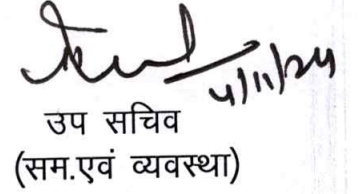 4/11/24
उप सचिव
(सम.एवं व्यवस्था)